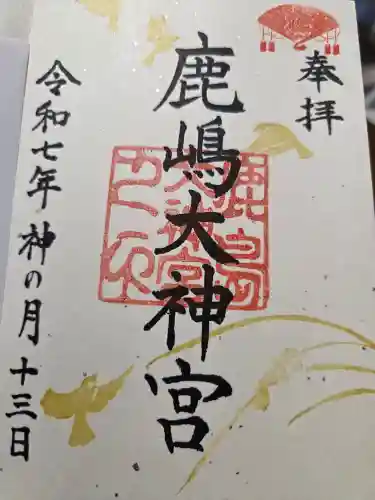 奉拝
鹿嶋大神宮
令和七年神の月十三日